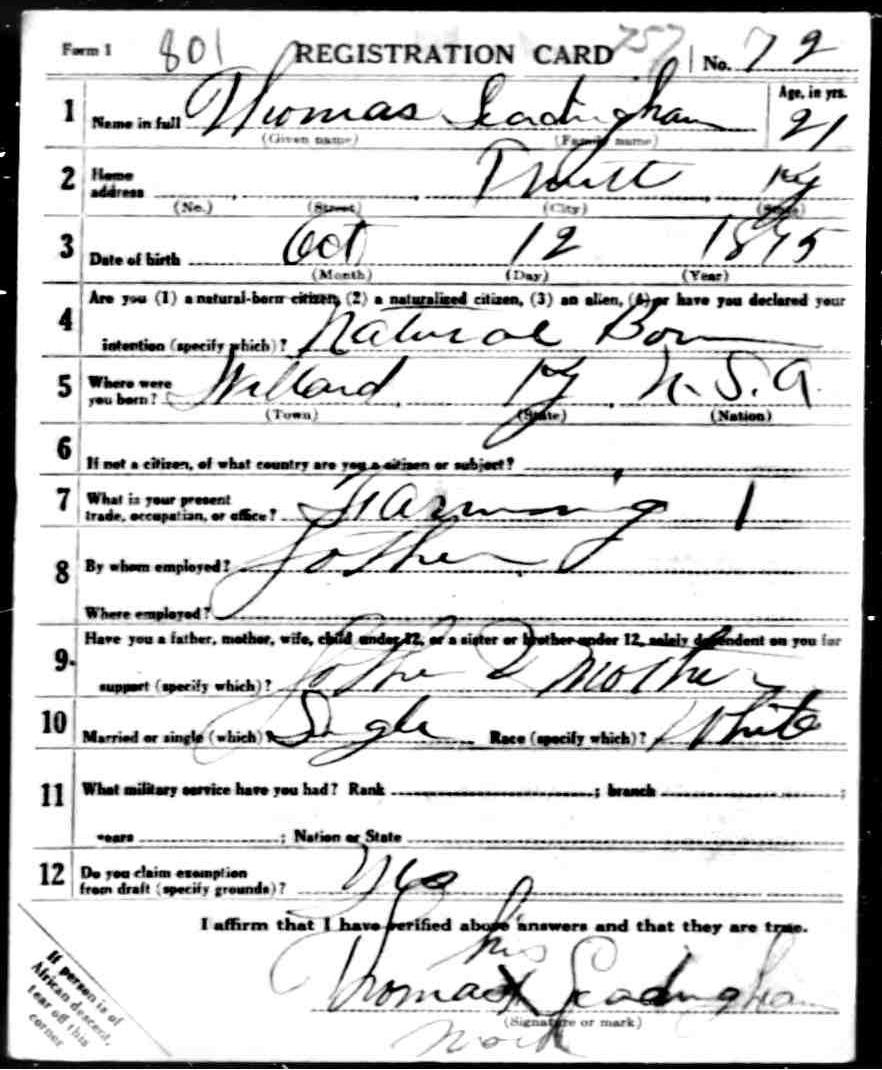 Form 1 801 REGISTRATION CARD 757 No. 72
1 Name in full Thomas Scadingham Age, in yrs. 21
(Given name) (Family name)
2 Home address Ky
(No.) (Street) (City) (State)
3 Date of birth Oct 12 1895
(Month) (Day) (Year)
4 Are you (1) a natural-born citizen, (2) a naturalized citizen, (3) an alien, (4) or have you declared your
intention (specify which)? Natural Born
5 Where were you born? Willard Ky U.S.A.
(Town) (State) (Nation)
6 If not a citizen, of what country are you a citizen or subject?
7 What is your present trade, occupation, or office? Farming 1
8 By whom employed? Father
Where employed?
9. Have you a father, mother, wife, child under 12, or a sister or brother under 12, solely dependent on you for
support (specify which)? Father & Mother
10 Married or single (which)? Single Race (specify which)? White
11 What military service have you had? Rank ; branch ;
years ; Nation or State
12 Do you claim exemption from draft (specify grounds)? Yes
I affirm that I have verified above answers and that they are true.
his
Thomas X Scadingham
(Signature or mark)
mark
If person is of
African descent,
tear off this
corner